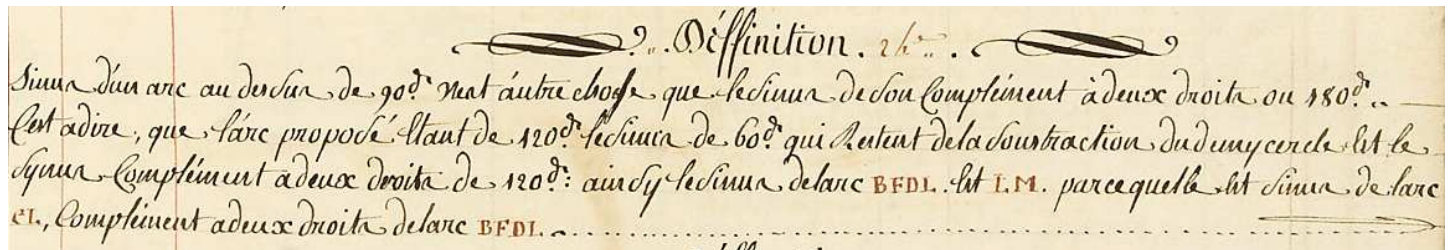 Déffinition. 2e..
Sinus d'un arc au dessus de 90.d n'est autre chose que le sinus de son Complément à deux droits ou 180.d..
C'est adire, que l'arc proposé Etant de 120.d le sinus de 60.d qui Restent de la soustraction du demy cercle Est le
Synus Complément a deux droits de 120.d: ainsy le sinus de l'arc BFDL. Est LM. parcequelle est sinus de l'arc
eL, Complément a deux droits de l'arc BFDL.